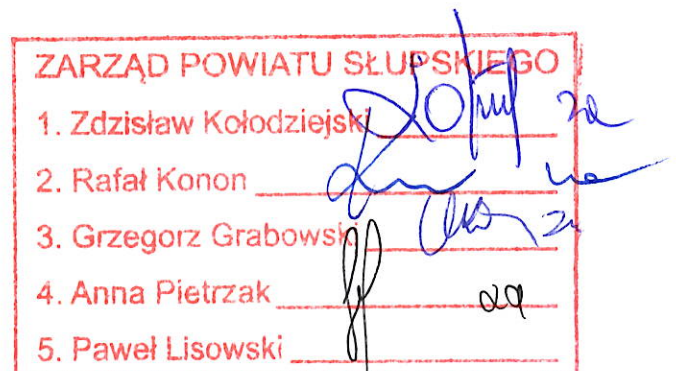 ZARZĄD POWIATU SŁUPSKIEGO
1. Zdzisław Kołodziejski za
2. Rafał Konon
3. Grzegorz Grabowski
4. Anna Pietrzak za
5. Paweł Lisowski